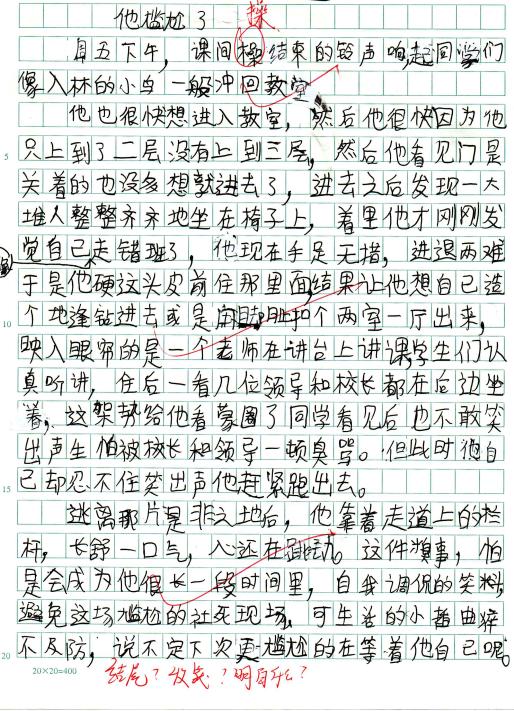 他尴尬了
操
周五下午，课间操结束的铃声响起同学们
像入林的小鸟一般冲回教室
他也很快想进入教室，然后他很快因为他
只上到了二层没有上到三层，然后他看见门是
关着的也没多想就进去了，进去之后发现一大
堆人整整齐齐地坐在椅子上，着里他才刚刚发
觉自己走错班了，他现在手足无措，进退两难
于是他硬这头皮前住那里面，结果让他想自己造
个地逢钻进去或是用脚扣个两室一厅出来，
映入眼帘的是一个老师在讲台上讲课，学生们认
真听讲，住后一看几位领导和校长都在后边坐
着，这架势给他看蒙圈了同学看见后也不敢笑
出声生怕被校长和领导一顿臭骂。但此时他自
己却忍不住笑出声他赶紧跑出去。
逃离那片是非之地后，他靠着走道上的栏
杆，长舒一口气，心还在跳动。这件糗事，怕
是会成为他很长一段时间里，自我调侃的笑料，
避免这场尴尬的社死现场，可生活的小插曲猝
不及防，说不定下次更尴尬的在等着他自己呢。
20×20=400
结尾？收获？明白什么？
5
10
15
20